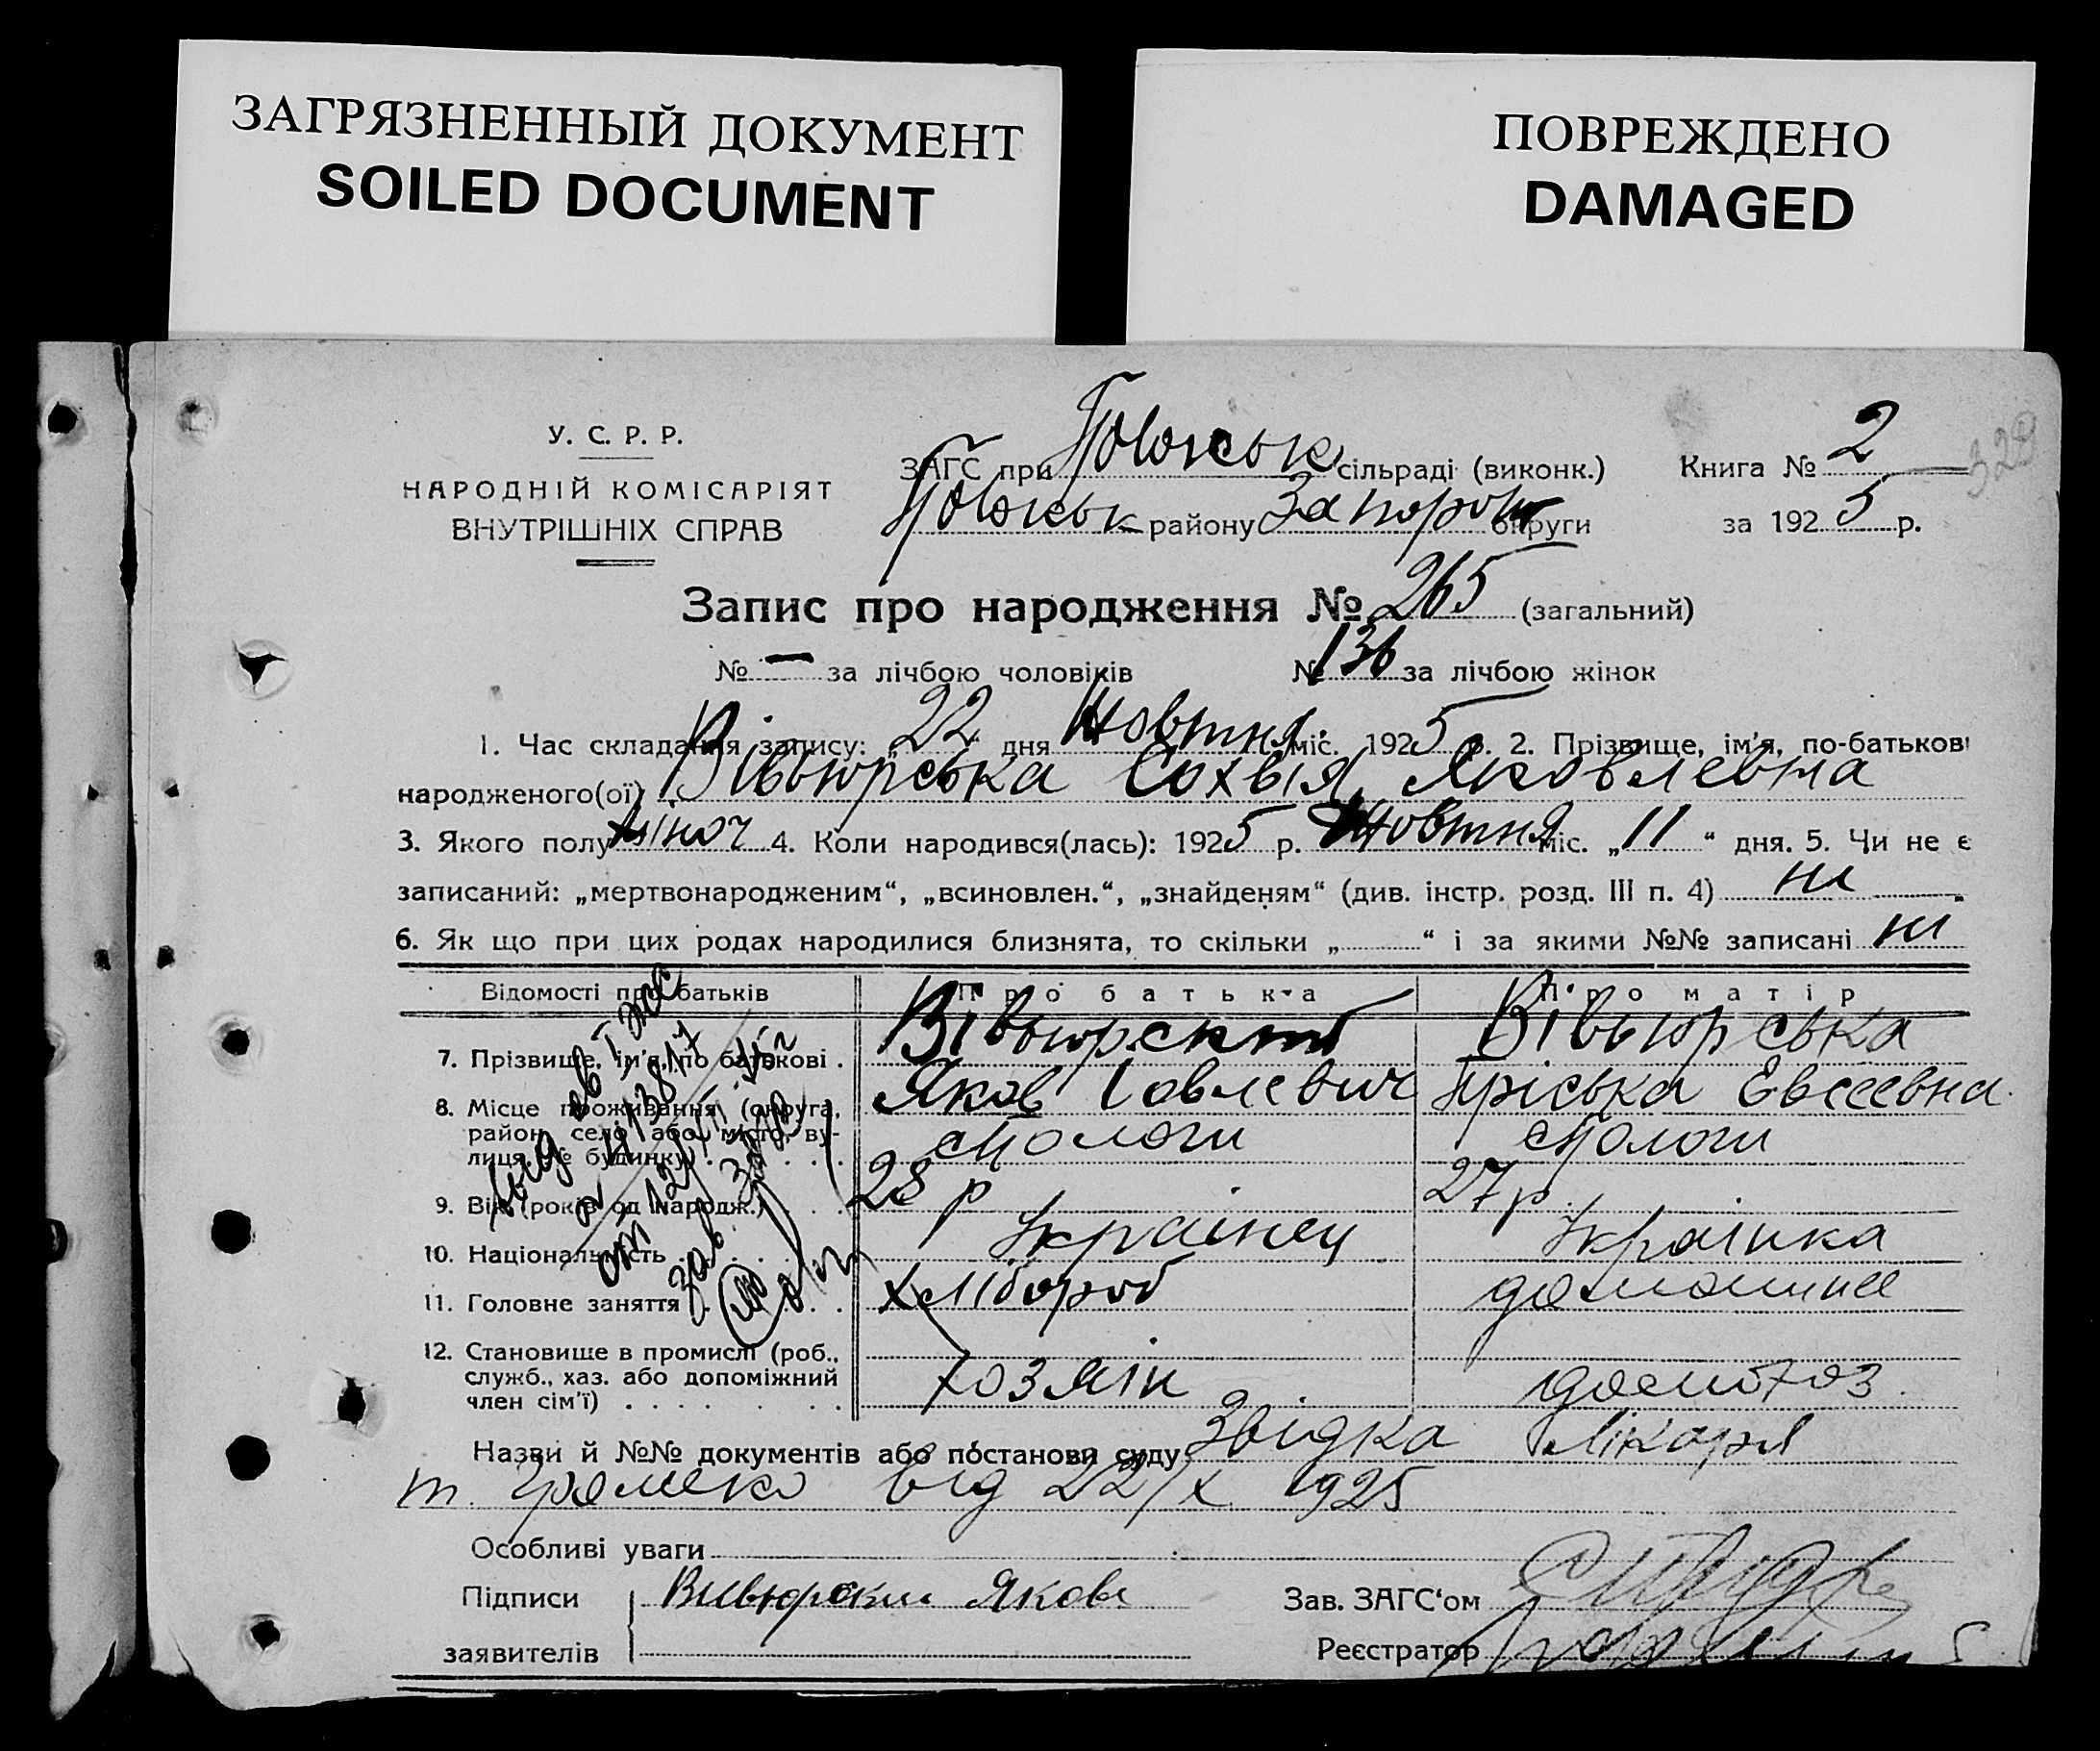 ЗАГРЯЗНЕННЫЙ ДОКУМЕНТ
SOILED DOCUMENT
ПОВРЕЖДЕНО
DAMAGED
У. С. Р. Р.
НАРОДНІЙ КОМІСАРІЯТ
ВНУТРІШНІХ СПРАВ
ЗАГС при сільраді (виконк.)
району Запоріз округи
Книга № 2
за 1925 р.
329
Запис про народження № 265 (загальний)
№ — за лічбою чоловіків № 136 за лічбою жінок
1. Час складання запису: „22" дня Жовтня міс. 1925 р. 2. Прізвище, ім'я, по-батькові
народженого(ої) Вівьюрська Софвія Яковлевна
3. Якого полу жіноч 4. Коли народився(лась): 1925 р. Жовтня міс. „11" дня. 5. Чи не є
записаний: „мертвонародженим", „всиновлен.", „знайденям" (див. інстр. розд. III п. 4) ні
6. Як що при цих родах народилися близнята, то скільки „ " і за якими №№ записані ні
Відомості про батьків Про батька Про матір
7. Прізвище, ім'я, по батькові . Вівьюрский Вівьюрська
Яков Іовлевич Пріська Евсеевна
8. Місце проживання (округа, район, село або місто, вулиця, № будинку) . Пологи Пологи
9. Вік (років од народж.) . 28 р 27 р.
10. Національність . Українец Українка
11. Головне заняття . Хлібороб домашнє
12. Становище в промислі (роб., служб., хаз. або допоміжний член сім'ї) . Хозяїн домохоз.
Назви й №№ документів або постанови суду Звідка Лікаря
т. Громеко від 22/X 1925
Особливі уваги
Підписи Вивюрский Яков
заявителів
Зав. ЗАГС'ом
Реєстратор